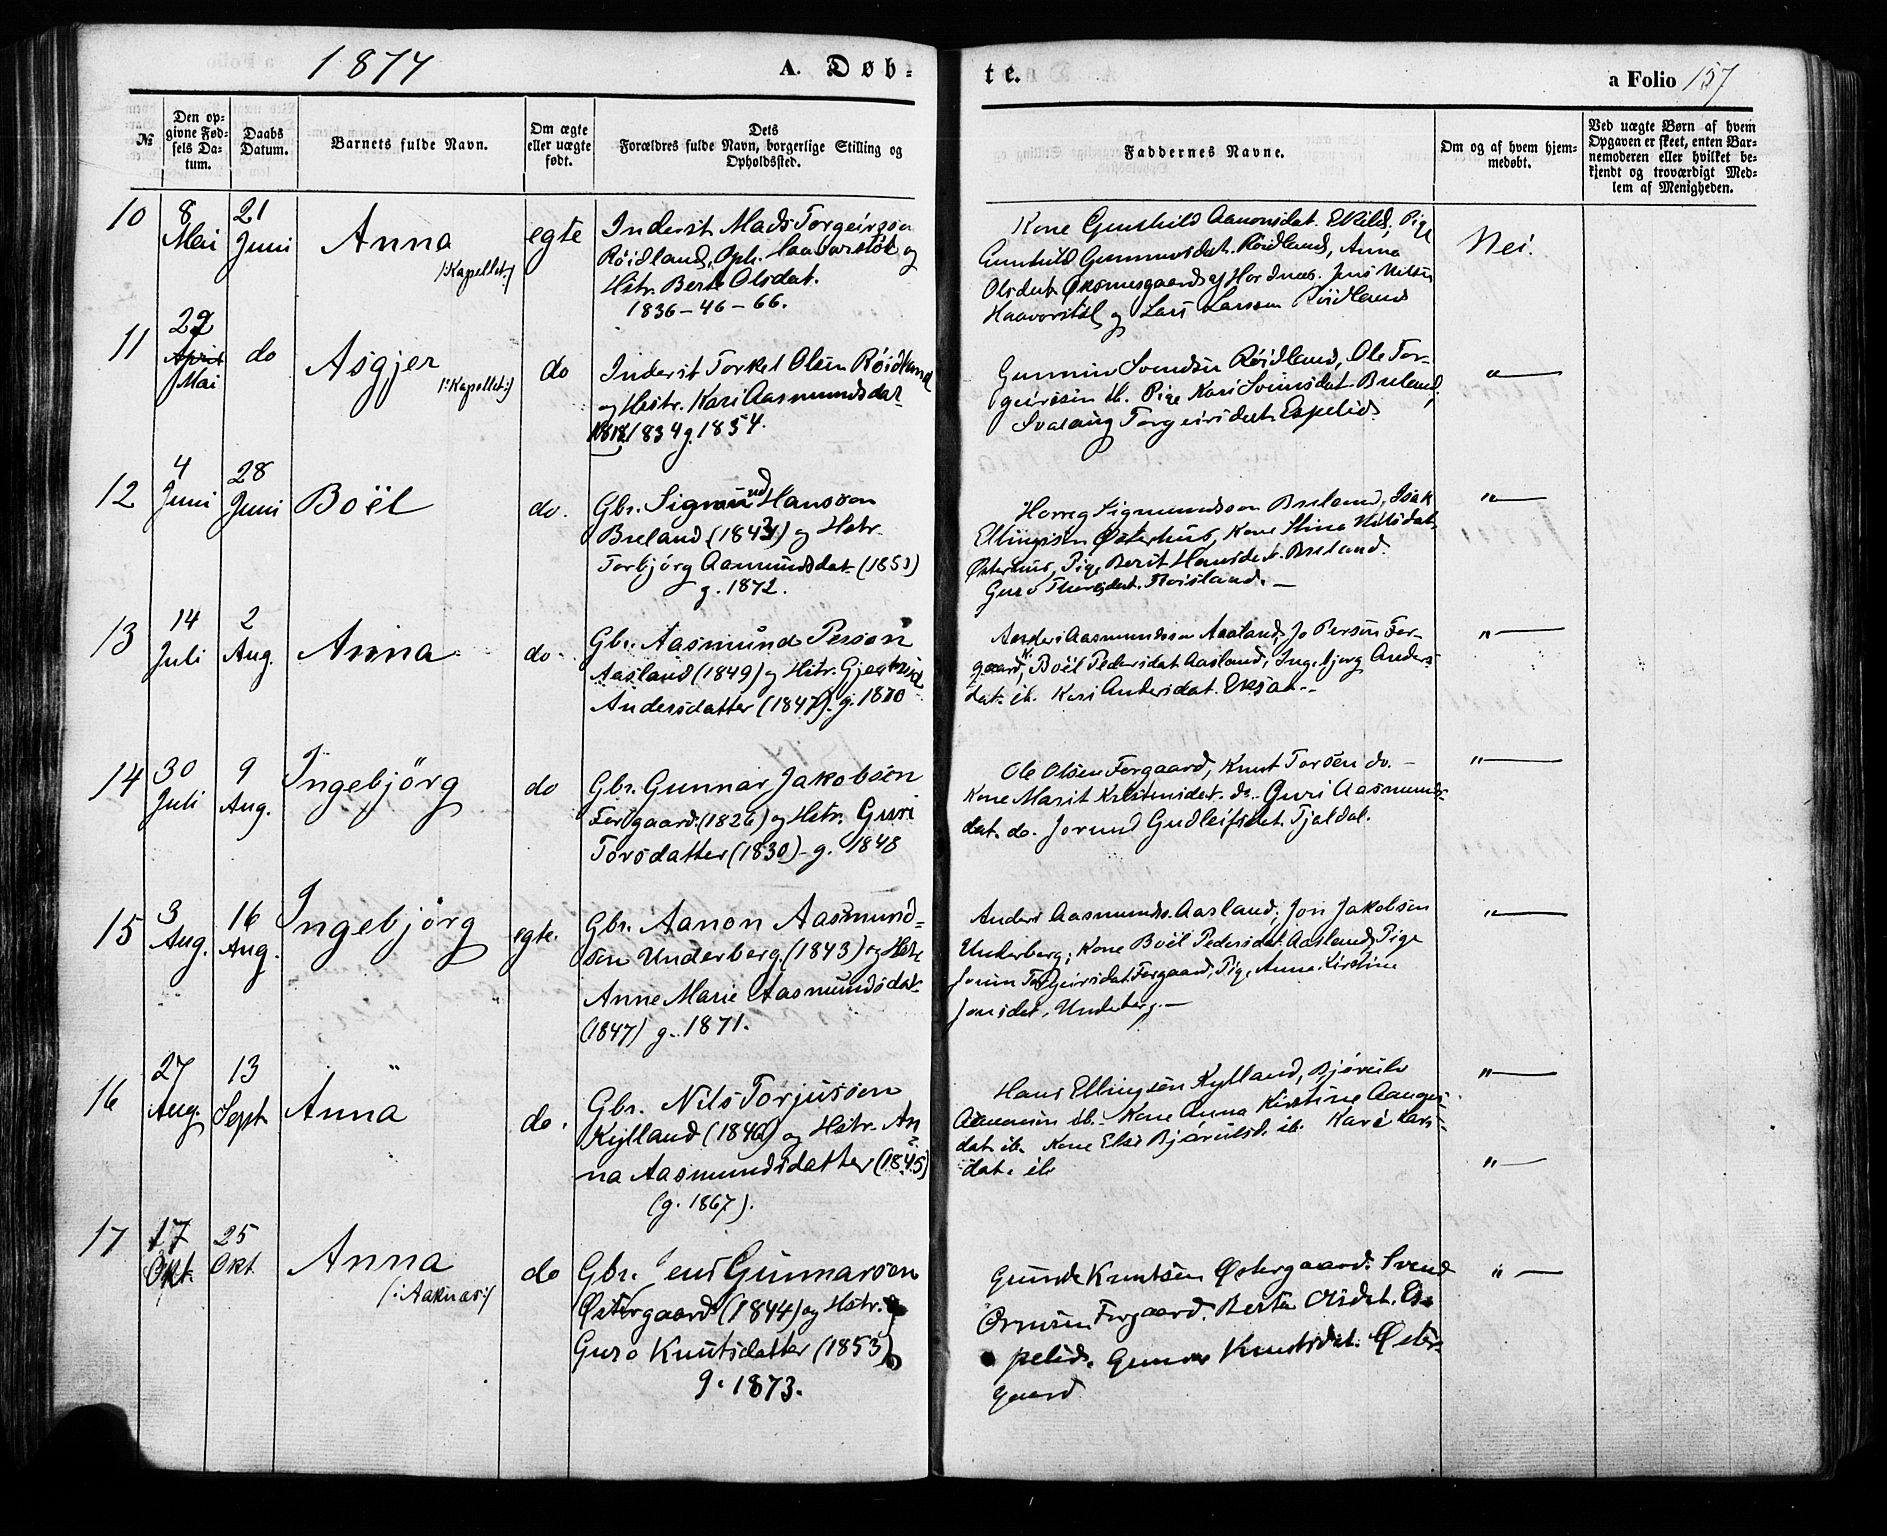 1874
A. Døb-
te.
a Folio 157
№
Den op-
givne Fød-
sels Da-
tum.
Daabs
Datum.
Barnets fulde Navn.
Om ægte
eller uægte
født.
Dets
Forældres fulde Navn, borgerlige Stilling og
Opholdssted.
Faddernes Navne.
Om og af hvem hjem-
medøbt.
Ved uægte Børn af hvem
Opgaven er skeet, enten Bar-
nemoderen eller hvilket be-
kjendt og troværdigt Med-
lem af Menigheden.
10
8
Mai
21
Juni
Anna
/:Kapellet:/
egte
Inderst Mads Torgeirsson
Røidland, Oph. Haavorstøl og
Hstr. Berte Olsdat.
1836-46-66.
Kone Gunhild Aanonsdat. Pige
Gunhild Gunnarsdat. Røidland, Anna
Olsdat. Jens Nilsen
Haavorstøl og Lars Larsen Røidland
Nei.
11
29
April
Mai
do
Asgjer
/:Kapellet:/
do
Inderst Torkel Olsen Røidland
og Hstr. Kari Aasmundsdat.
1834 g. 1854.
Gunnar Svendsen Røidland, Ole Tor-
geirsen ib. Pige Kari Svensdat. Breland,
Svalaug Torgeirsdat. Espelid
"—
12
4
Juni
28
Juni
Boël
do.
Gbr. Sigmund Hansson
Breland (1843) og Hstr.
Torbjørg Aamundsdat. (1853)
g. 1872.
Sigmundsson Breland, Isak
Ellingsen Østerhus, Kone Stina Nilsdat.
Østerhus, Pige Berit Hansdat. Breland.
Guro Thorsdat. Røisland. —
"—
13
14
Juli
2
Aug.
Anna
do.
Gbr. Aasmund Person
Aasland (1849) og Hstr. Gjertrud
Andersdatter (1847). g. 1870
Anders Aasmundsson Aasland, Jo Persen Fer-
gaard, K. Boël Pedersdat. Aasland, Ingebjørg Anders-
dat. ib. Kari Andersdat. Eksaa.
"—
14
30
Juli
9
Aug.
Ingebjörg
do
Gbr. Gunnar Jakobsen
Fergaard. (1826) og Hstr. Guri
Torsdatter (1830) - g. 1848
Ole Olsen Fergaard, Knut Torsen do. -
Kone Marit Kristensdat. do. Guri Aasmunds-
dat. do. Jorund Gudleifsdat. Tjaldal.
"—
15
3
Aug.
16
Aug.
Ingebjörg
egte.
Gbr. Aanon Aasmund-
sen Underberg. (1843) og Hstr.
Anne Marie Aasmundsdat.
(1847) g. 1871.
Anders Aasmunds. Aasland, Jon Jakobsen
Underberg, Kone Boël Pedersdat. Aasland, Pige
Jorun Torgeirsdat. Fergaard, Pige Anne Kirstine
Jonsdat. Underberg. —
"—
16
27
Aug.
13
Sept
Anna
do.
Gbr. Nils Torjusson
Kylland (1840) og Hstr. An-
na Aasmundsdatter (1845)
(g. 1867).
Hans Ellingsen Kylland, Bjørulv
Aanonsen ib. - Kone Anna Kirstine Aanons-
dat. ib. Kone Else Bjørulsd. ib. Kari Lars-
dat. ib
"—
"—
17
17
Okt.
25
Okt
Anna
/:Aaknas:/
do
Gbr. Jens Gunnarson
Østergaard (1844) og Hstr.
Guro Knutsdatter (1853)
g. 1873.
Gunde Knutsen Østergaard. Svend
Ormsen Fergaard. Berte Olsdat. Es-
pelid. Gunvor Knutsdat. Øster-
gaard
"—